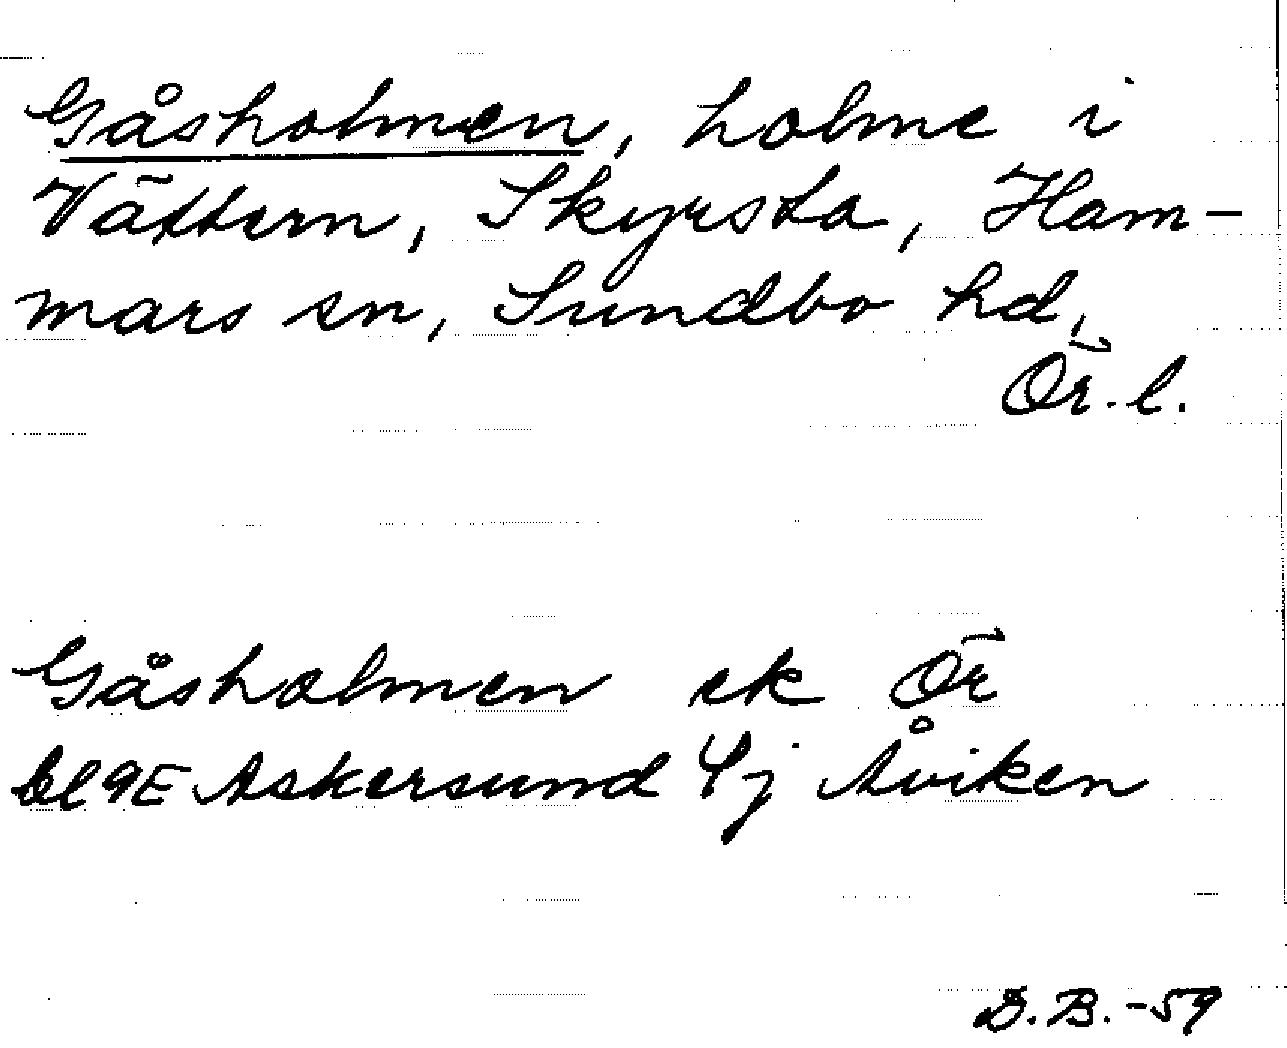 Gåsholmen, holme i
Vättern, Skyrsta, Ham-
mars sn, Sundbo hd,
Ör. l.
Gåsholmen ek Ör
bl 9E Askersund Åviken
D.B.-59